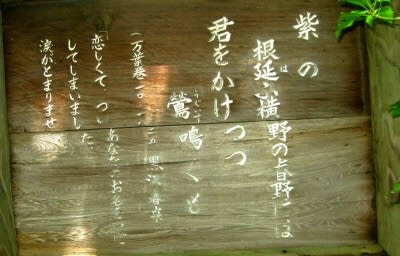 紫の
根延ふ横野の春野には
君をかけつつ
鶯鳴くも
うぐひす
は
(万葉巻一〇・一八二五 黒
恋しくて、つい あなたのお名
してしまいました。
涙がとまりませ